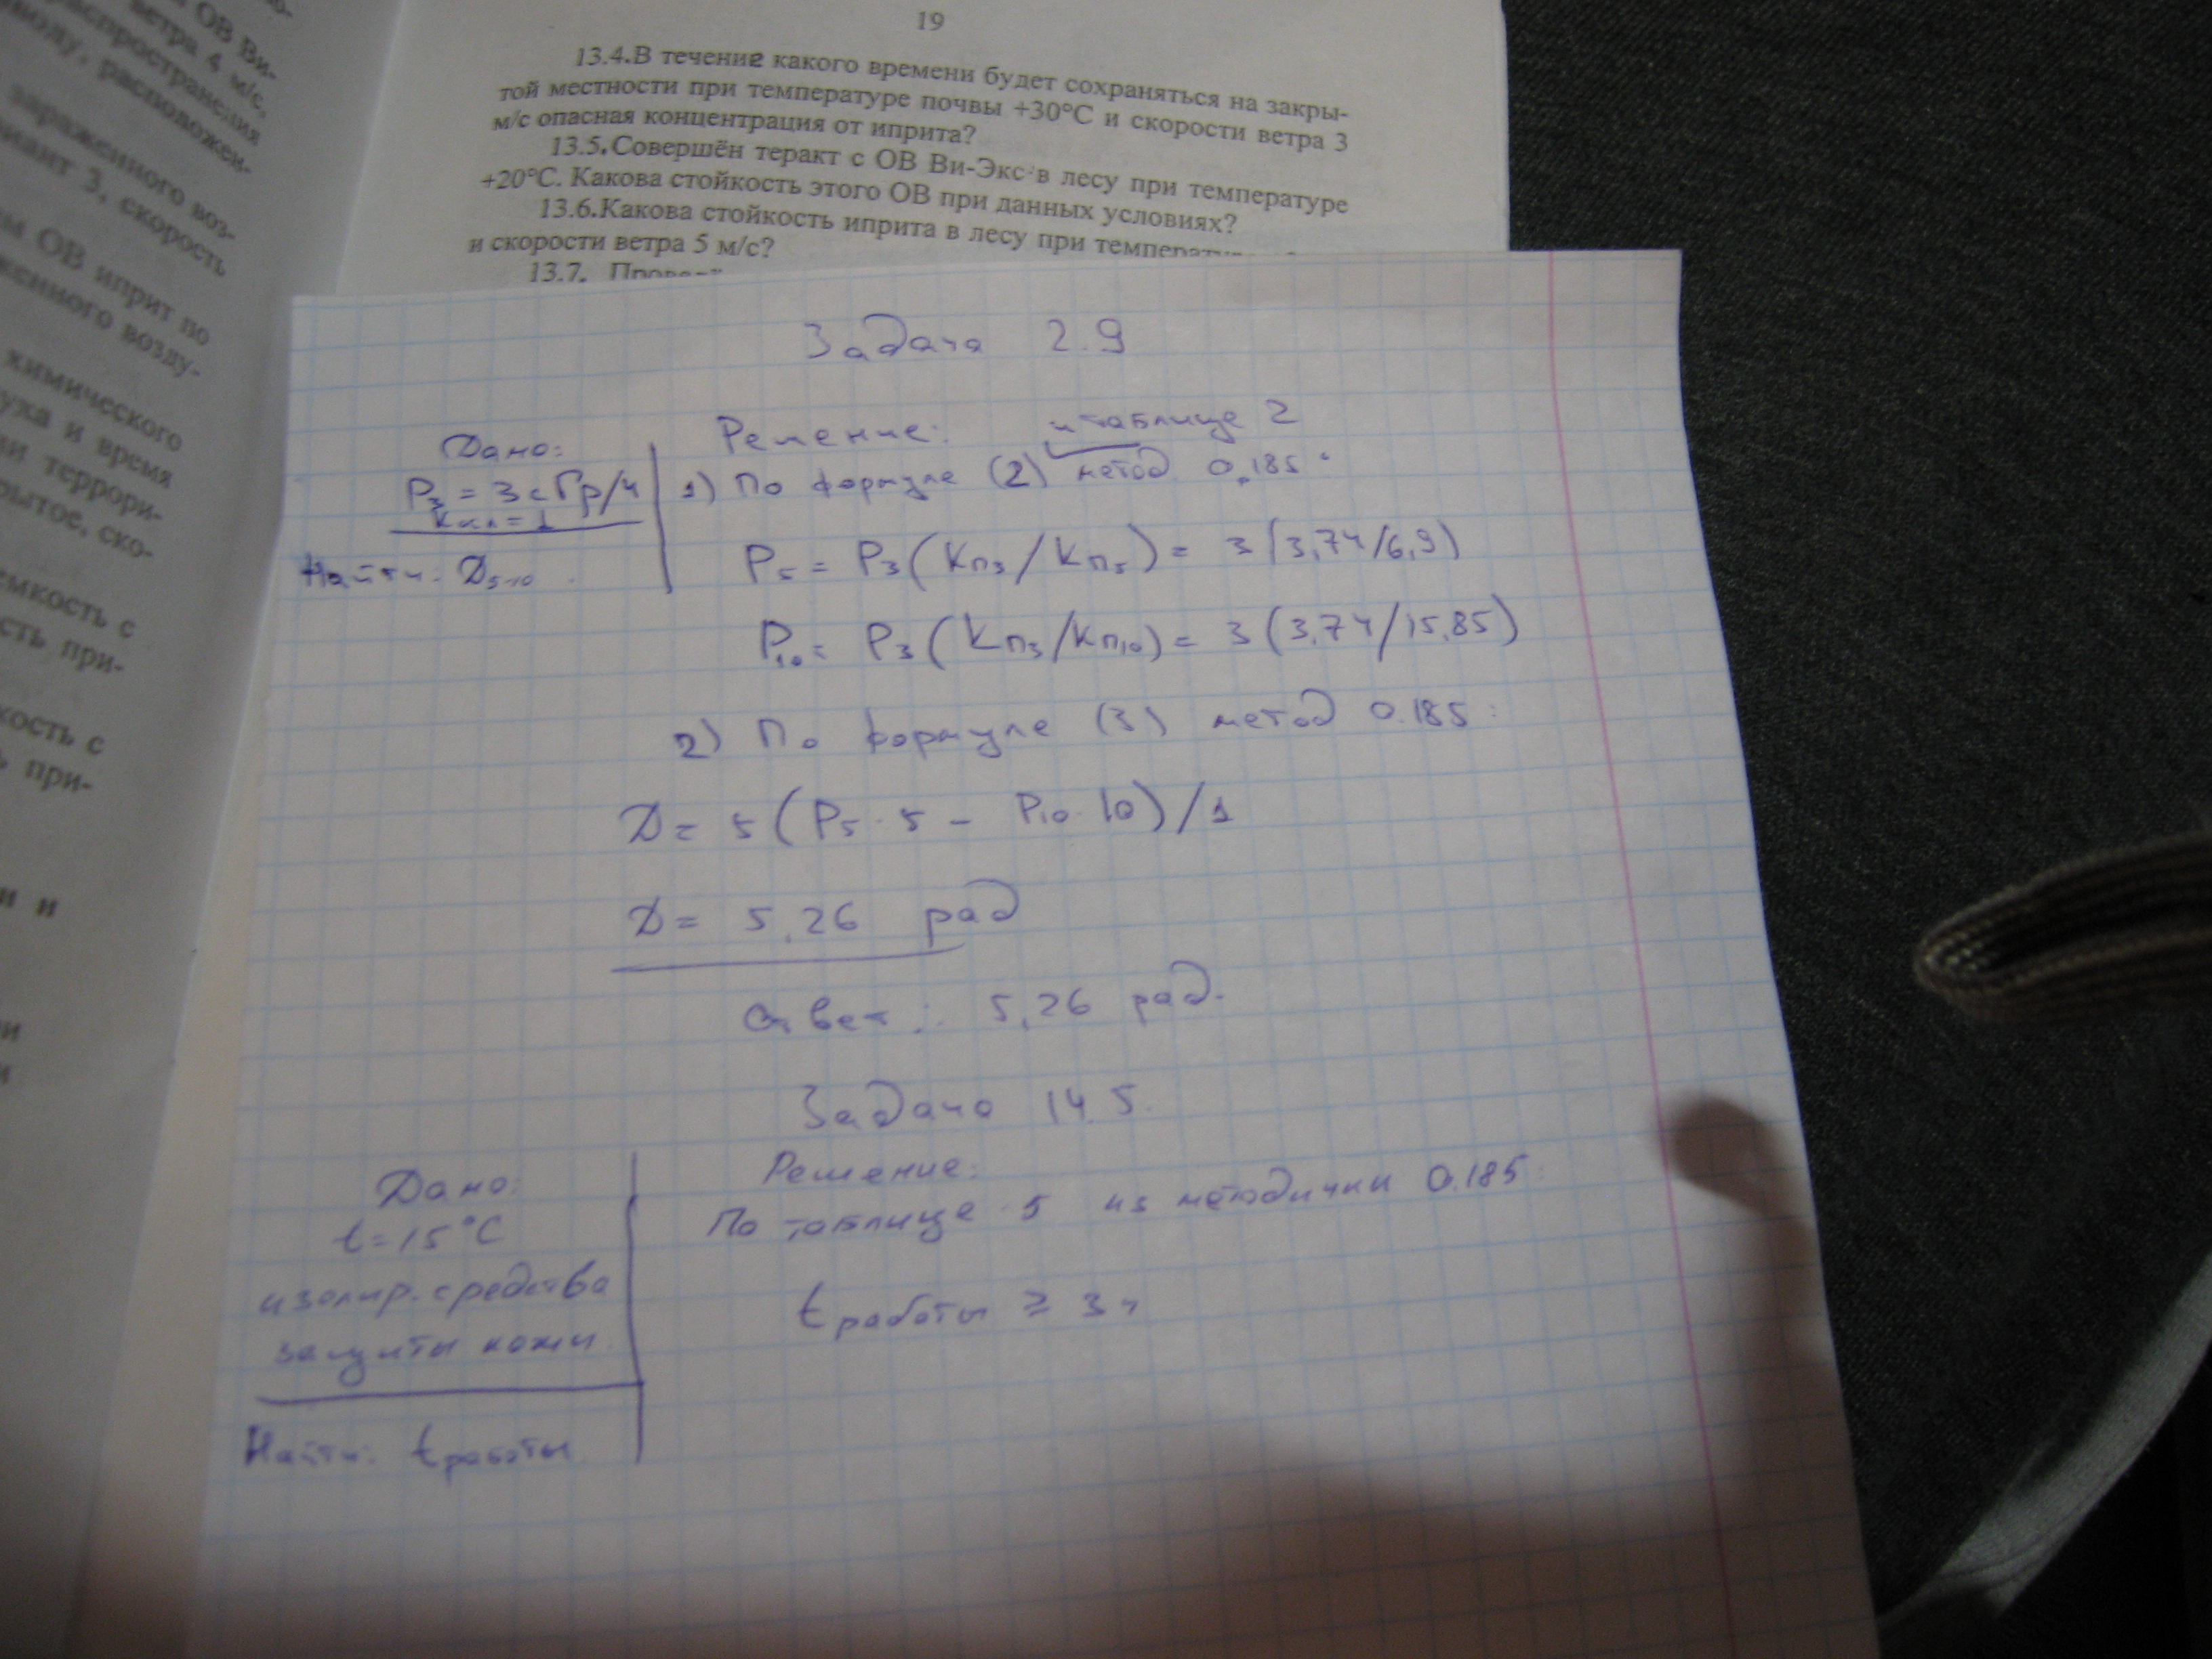 ОВ Ви-
ветра 4 м/с,
распространения
расположен-
заражённого воз-
риант 3, скорость
ОВ иприт по
возду-
химического
уха и время
ии террори-
рытое, ско-
емкость с
сть при-
кость с
при-
и и
19
13.4.В течение какого времени будет сохраняться на закры-
той местности при температуре почвы +30°С и скорости ветра 3
м/с опасная концентрация от иприта?
13.5.Совершён теракт с ОВ Ви-Экс в лесу при температуре
+20°С. Какова стойкость этого ОВ при данных условиях?
13.6.Какова стойкость иприта в лесу при
и скорости ветра 5 м/с?
13.7.
Задача 2.9
Дано:
P3 = 3 сГр/ч
Kосл = 1
Найти: D5-10
Решение: и таблице 2
1) По формуле (2) метод 0.185:
P5 = P3 (Kп3/Kп5) = 3 (3,74/6,9)
P10 = P3 (Kп3/Kп10) = 3 (3,74/15,85)
2) По формуле (3) метод 0.185:
D = 5 (P5 · 5 - P10 · 10) / 1
D = 5,26 рад
Ответ: 5,26 рад.
Задача 14.5.
Дано:
t = 15°C
изолир. средства
защиты кожи
Найти: tработы
Решение:
По таблице 5 из методички 0.185:
tработы ≥ 3 ч